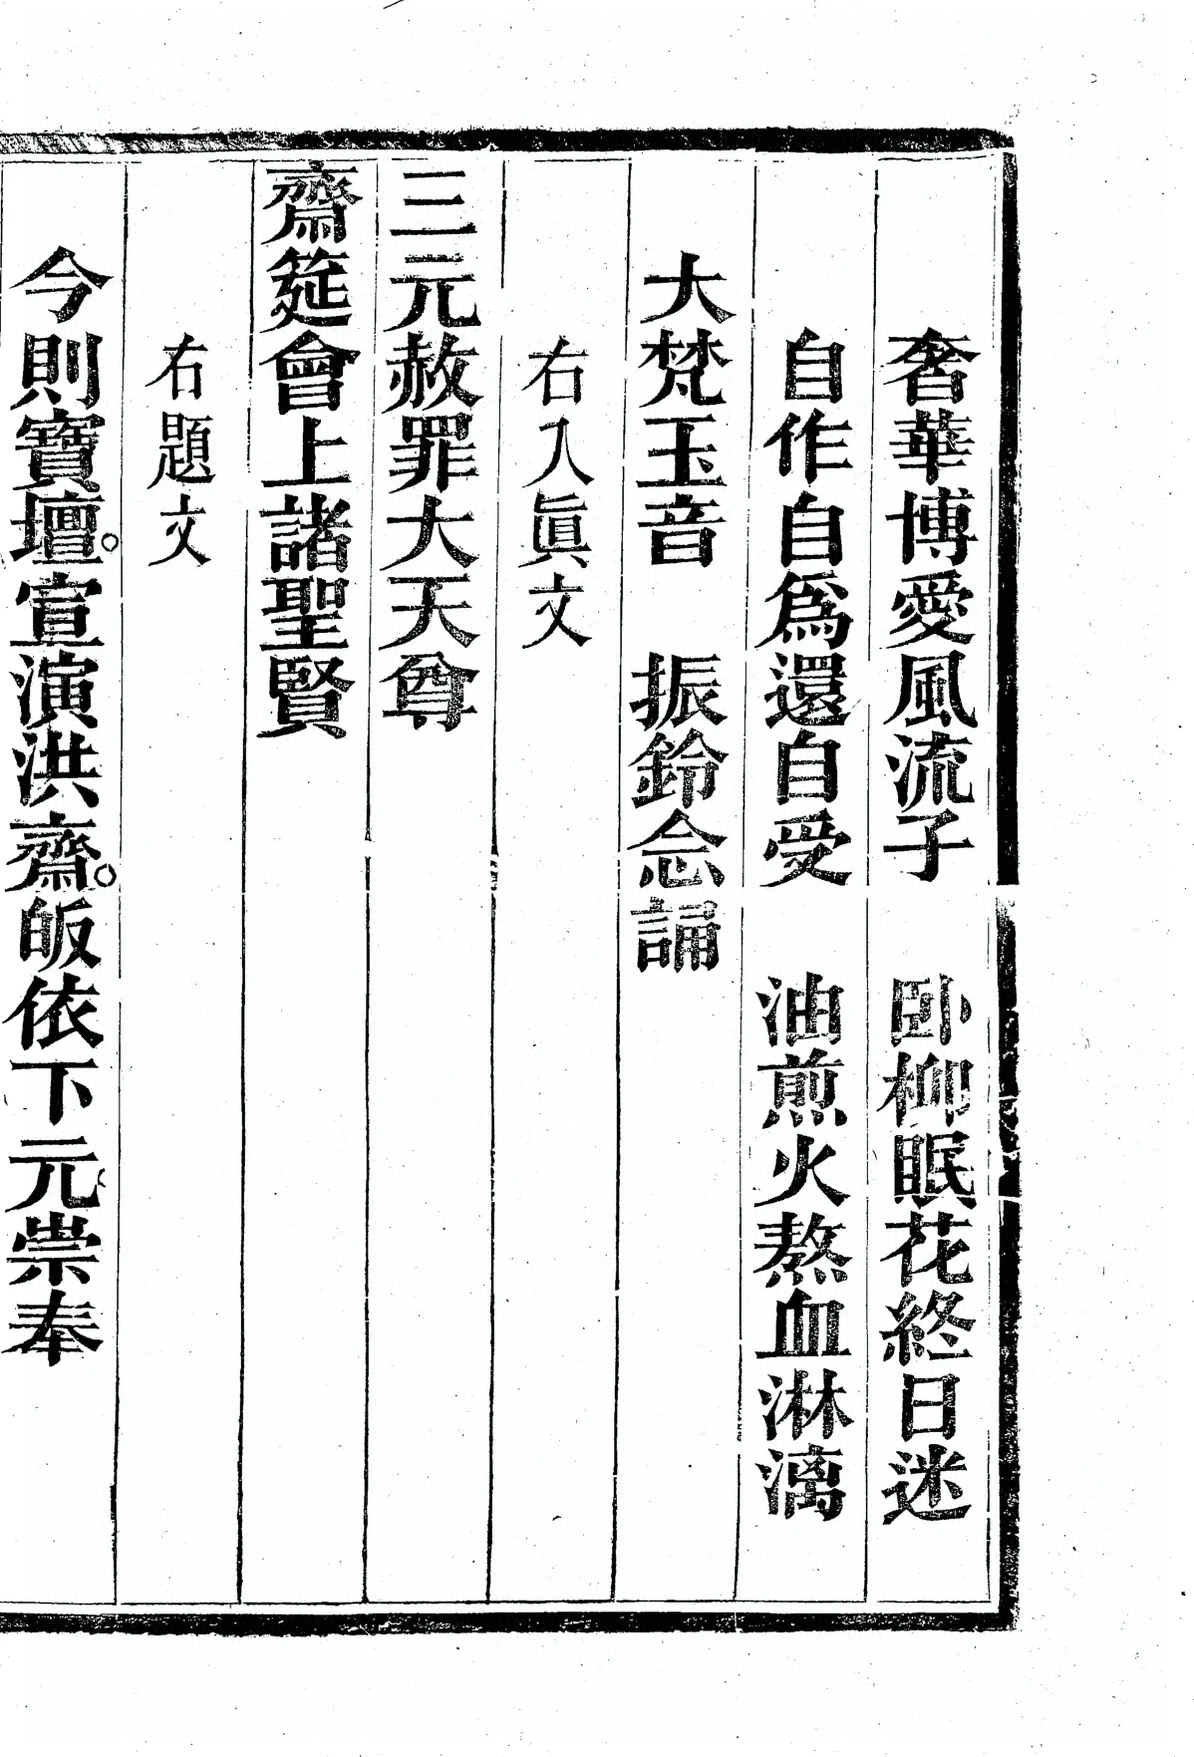 奢華博愛風流子　卧柳眠花終日迷
自作自爲還自受　油煎火熬血淋漓
大梵玉音　振鈴念誦
右入眞文
三元赦罪大天尊
齋筵會上諸聖賢
右題文
今則寶壇。宣演洪齋。皈依下元崇奉